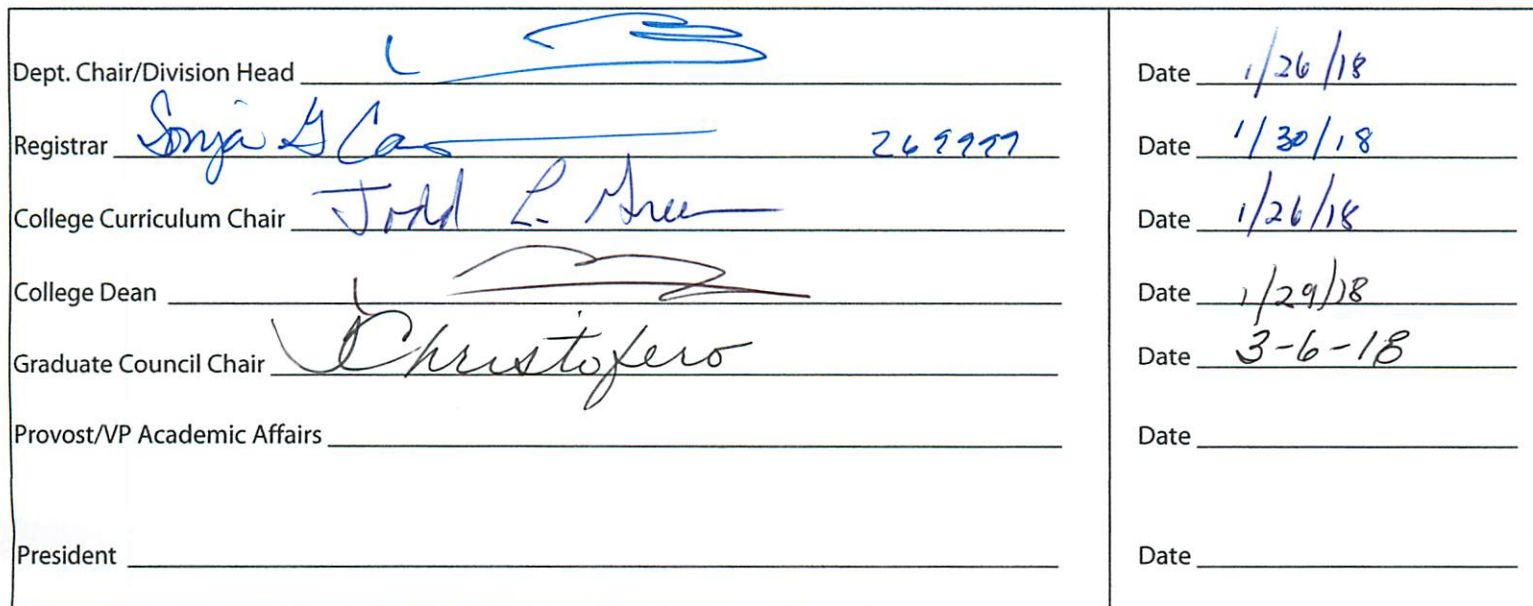 Dept. Chair/Division Head Date 1/26/18
Registrar Sonja G 269999 Date 1/30/18
College Curriculum Chair Todd L. Green Date 1/26/18
College Dean Date 1/29/18
Graduate Council Chair Christofero Date 3-6-18
Provost/VP Academic Affairs Date
President Date